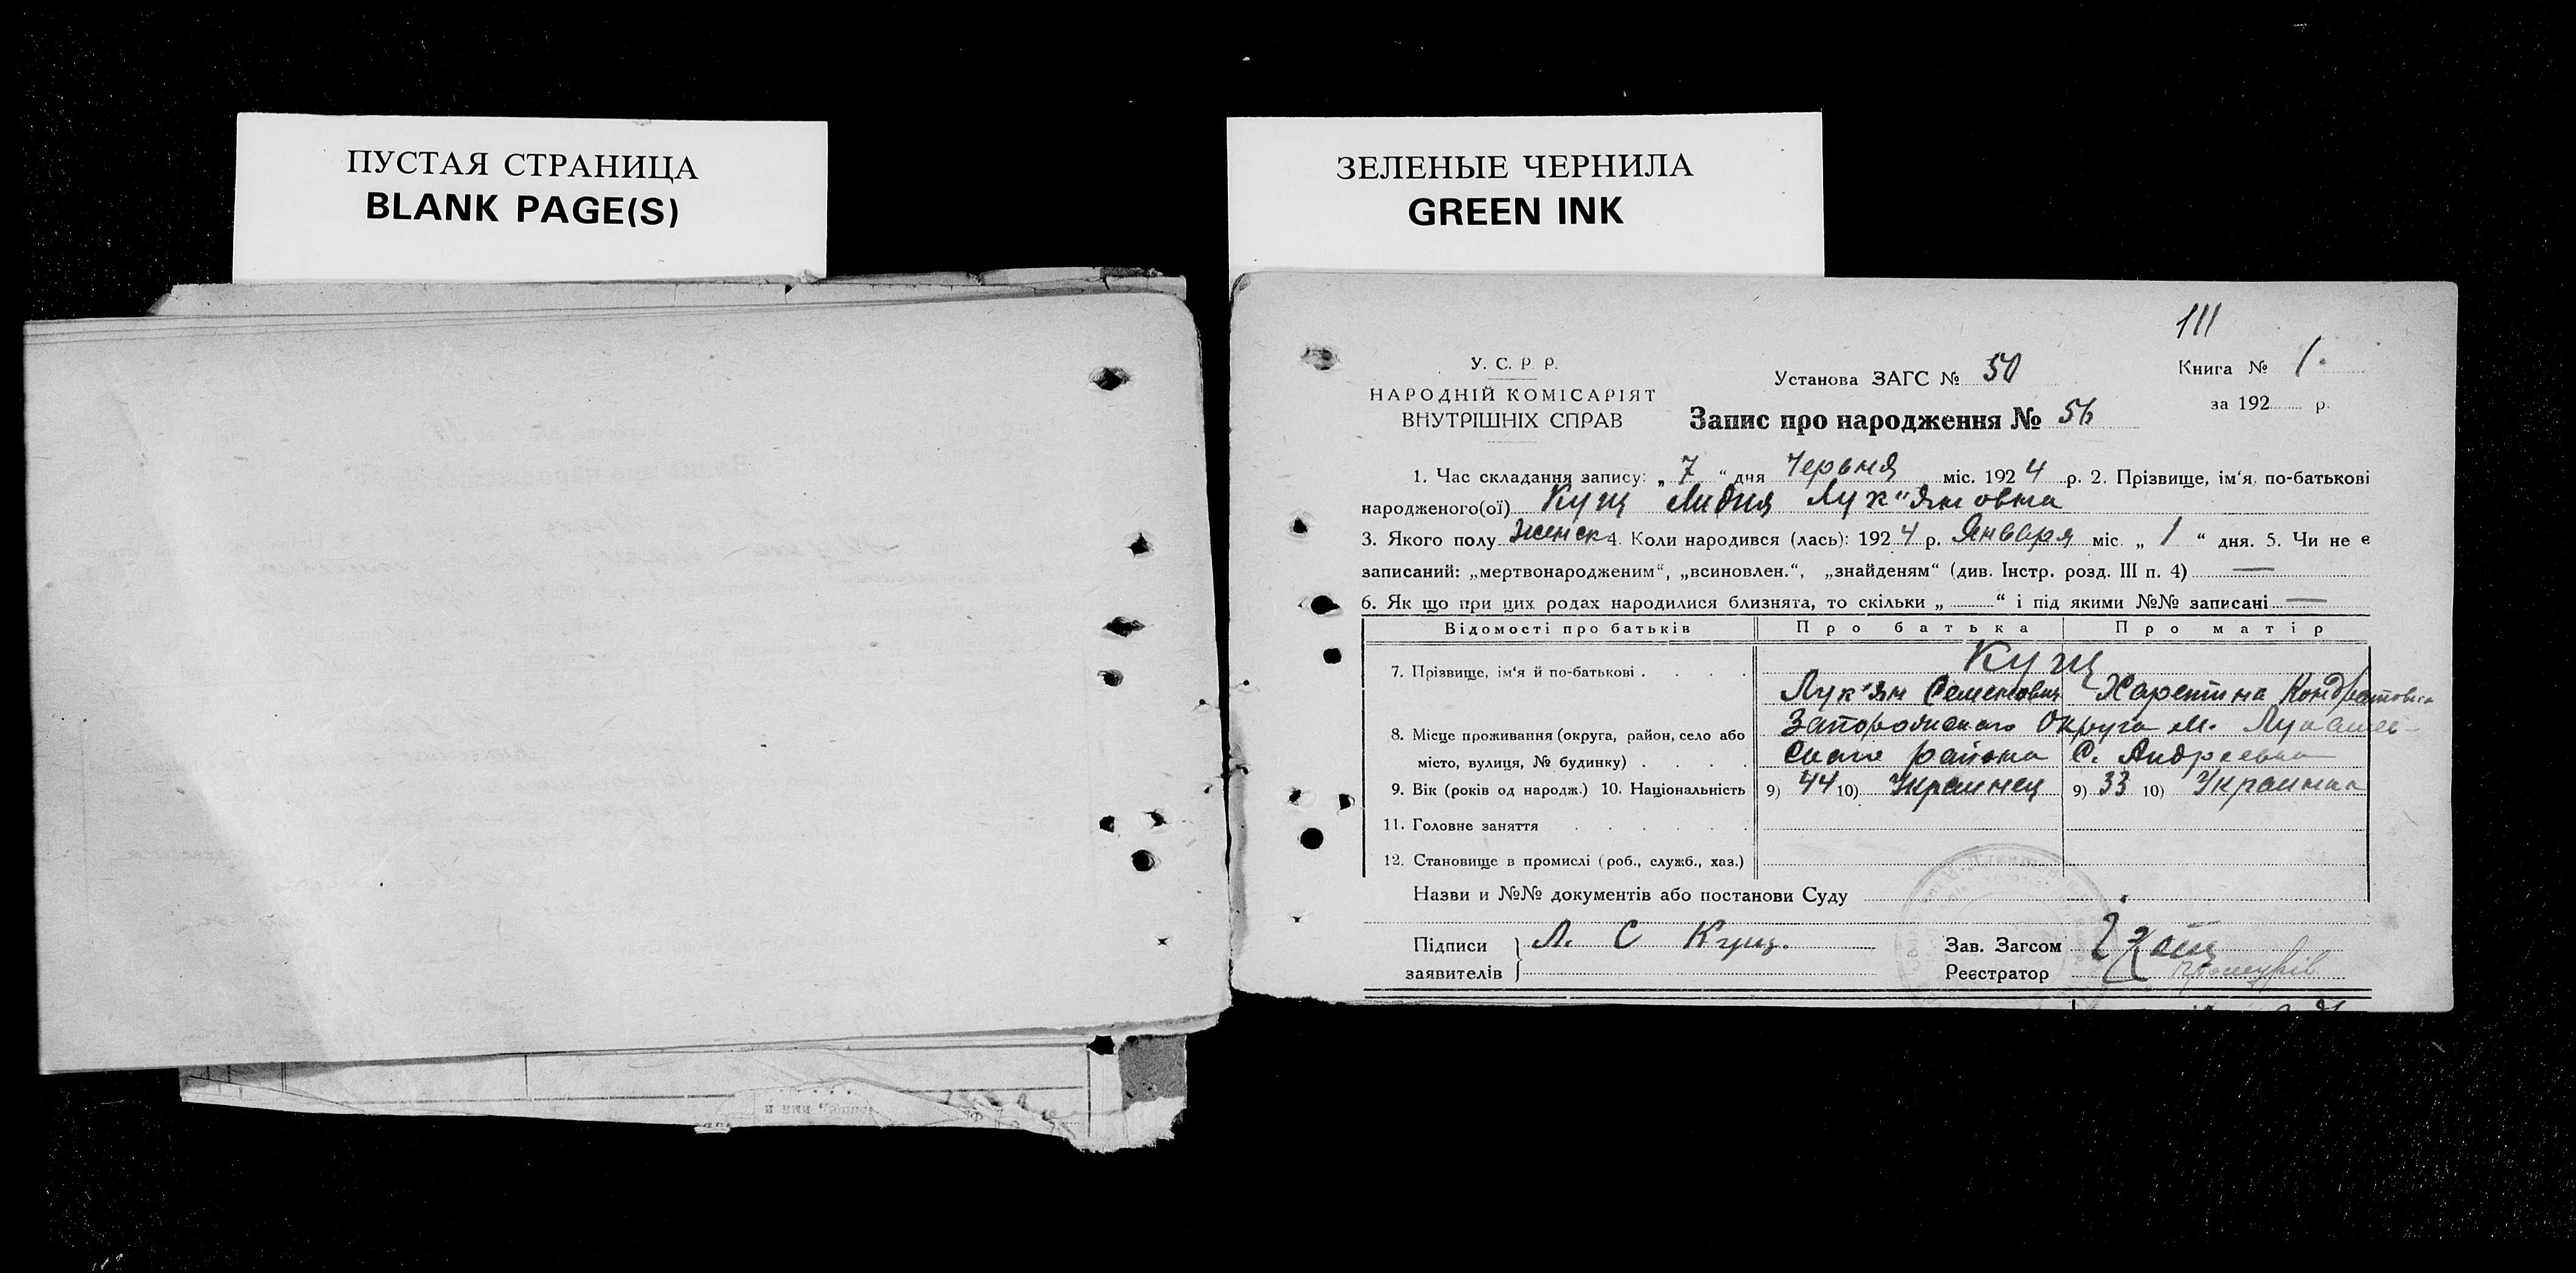 ПУСТАЯ СТРАНИЦА
BLANK PAGE(S)
ЗЕЛЕНЫЕ ЧЕРНИЛА
GREEN INK
111
У. С. Р. Р.
НАРОДНІЙ КОМІСАРІЯТ
ВНУТРІШНІХ СПРАВ
Установа ЗАГС № 50
Книга № 1.
за 192 р.
Запис про народження № 56
1. Час складання запису: „ 7 “ дня Червня міс. 1924 р. 2. Прізвище, ім'я, по-батькові
народженого(ої) Кущ Лидия Лук"яновна
3. Якого полу женск 4. Коли народився (лась): 1924 р. Января міс. „ 1 “ дня. 5. Чи не є
записаний: „мертвонародженим“, „всиновлен.“, „знайденям“ (див. Інстр. розд. III п. 4) —
6. Як що при цих родах народилися близнята, то скільки „ “ і під якими №№ записані —
Відомості про батьків Про батька Про матір
7. Прізвище, ім'я й по-батькові . . . . Кущ
Лук"ян Семенович Харетина Кондратовна
8. Місце проживання (округа, район, село або Запорожского Округа М. Лукашев-
місто, вулиця, № будинку) . . . . ского района С. Андреевка
9. Вік (років од народж.) 10. Національність 9) 44 10) Украинец 9) 33 10) Украинка
11. Головне заняття . . . . . .
12. Становище в промислі (роб., служб., хаз.)
Назви и №№ документів або постанови Суду
Підписи Л. С Кущ. Зав. Загсом
заявителів Реєстратор